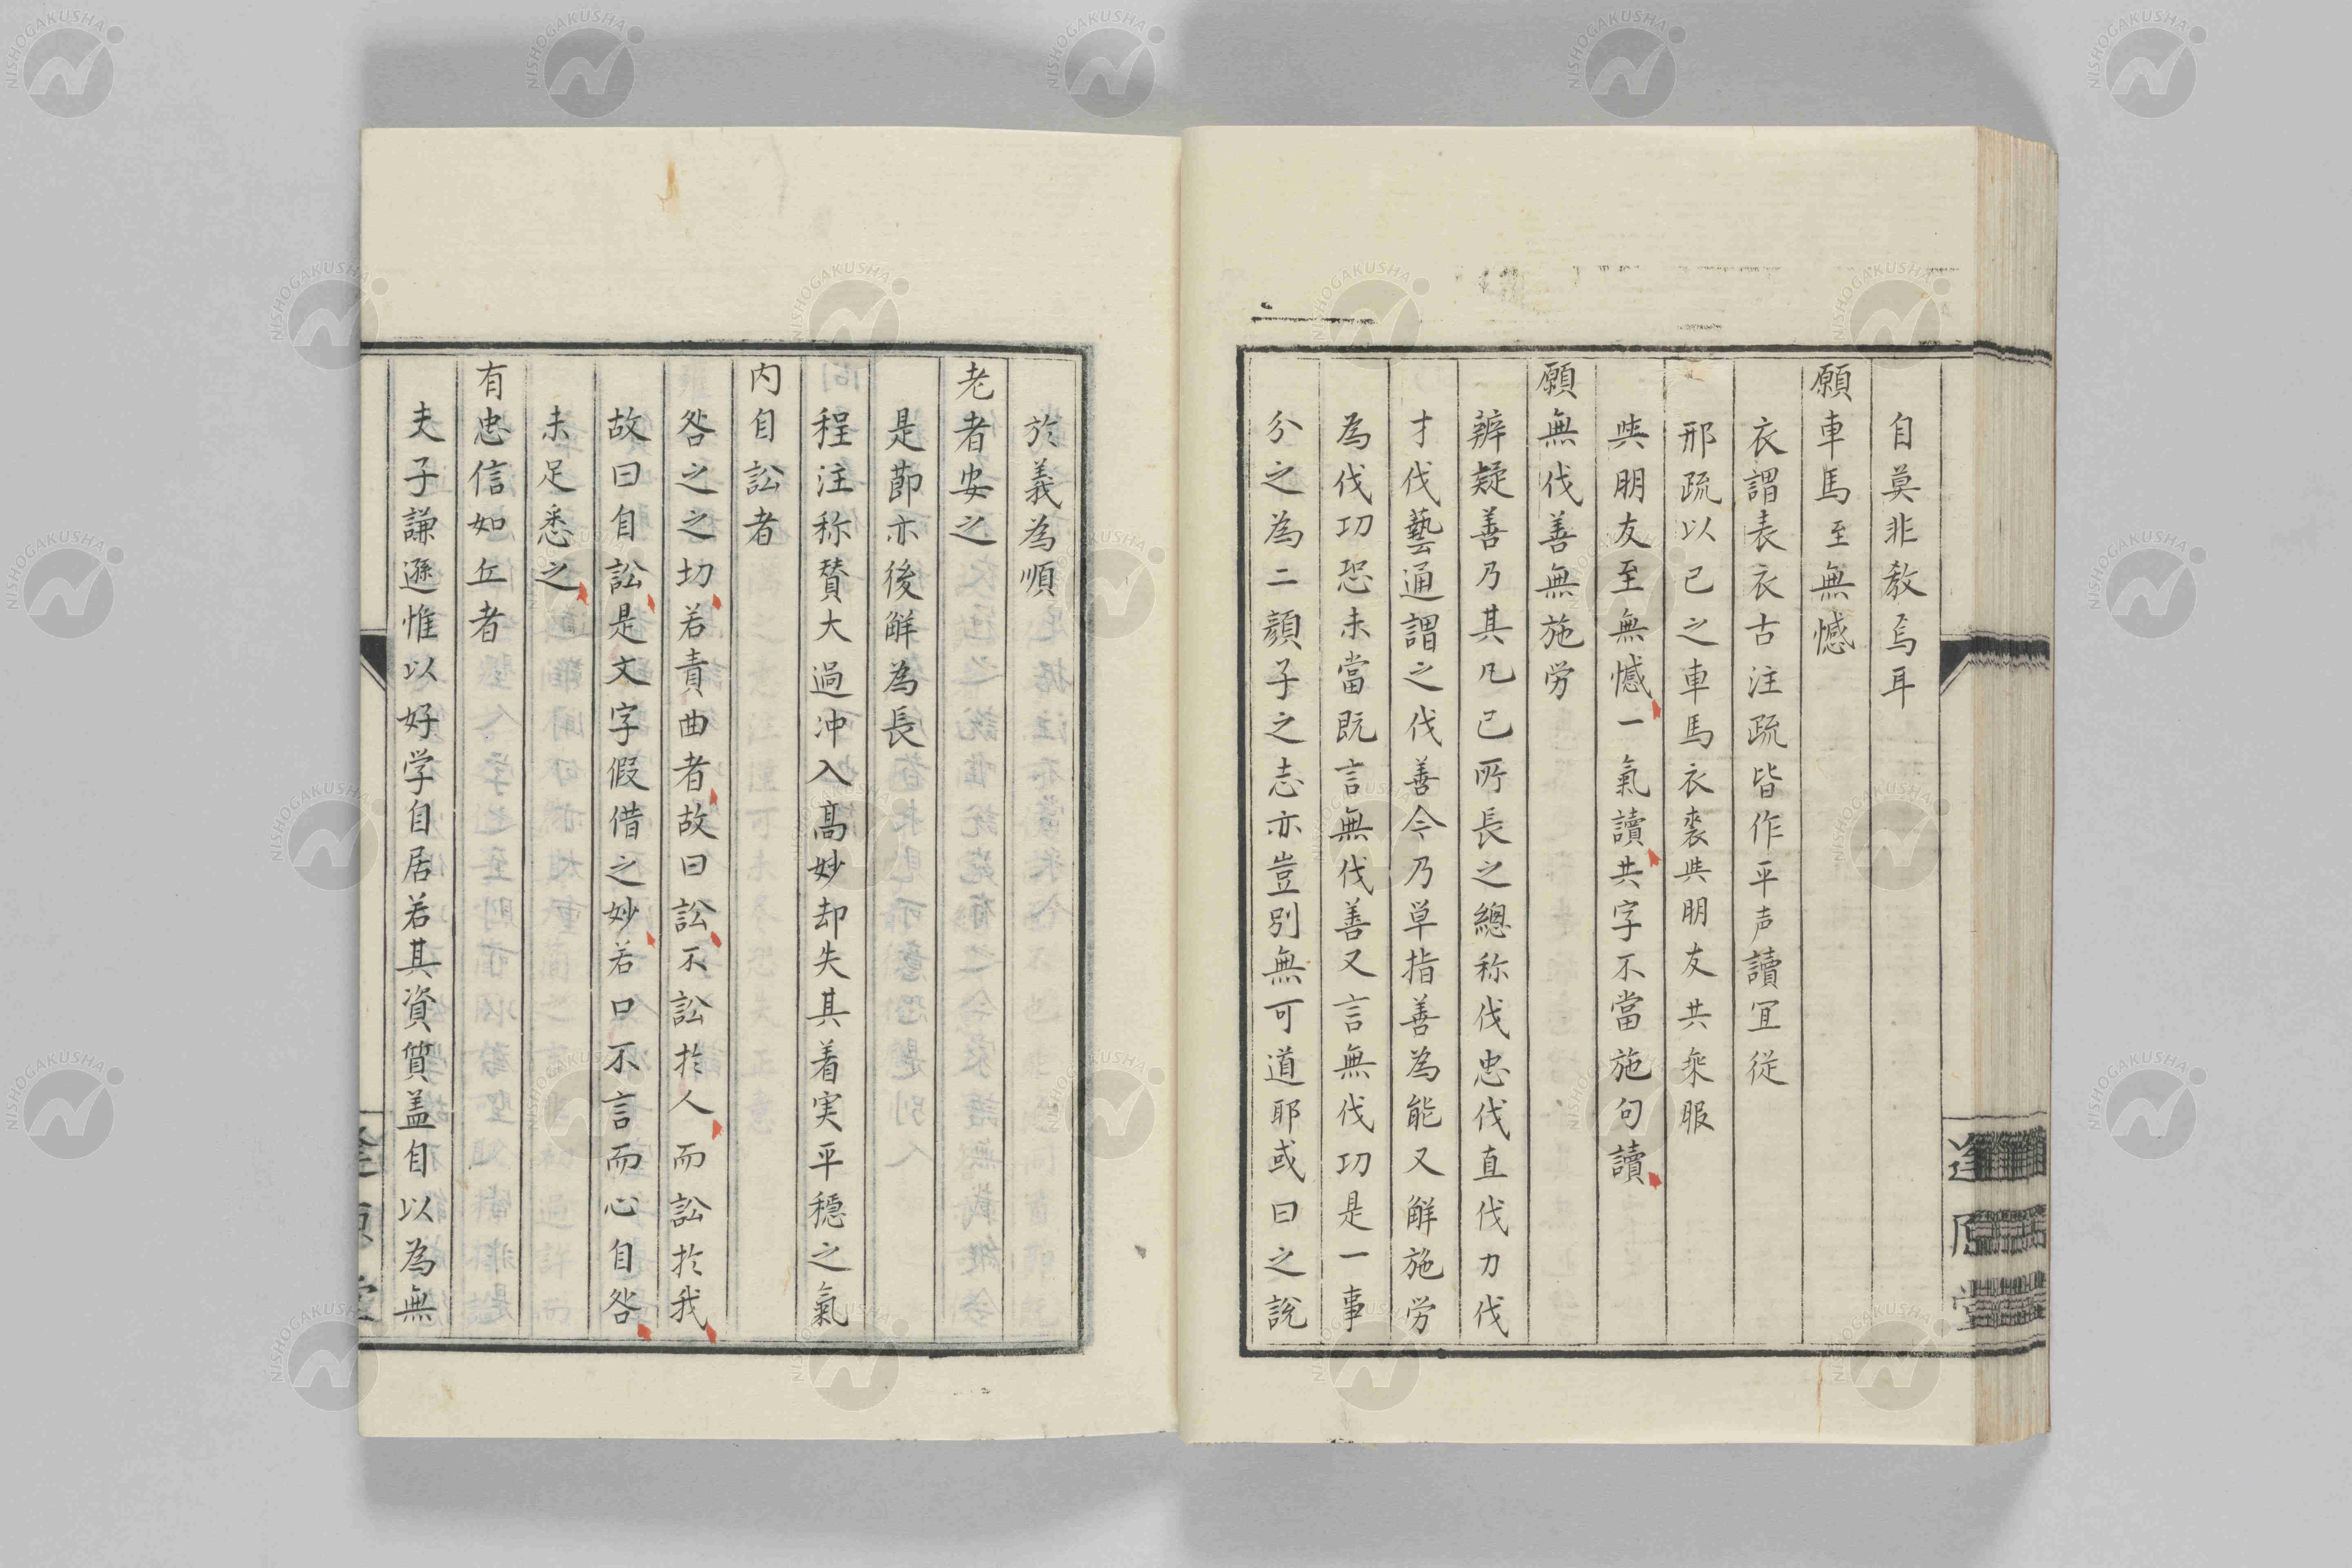 自莫非教焉耳
願車馬至無憾
衣謂表衣古注疏皆作平声讀宜從
邢疏以己之車馬衣裘與朋友共乘服
與朋友至無憾一氣讀共字不當施句讀
願無伐善無施労
辨疑善乃其凡已所長之總称伐忠伐直伐力伐
才伐藝通謂之伐善今乃単指善為能又解施労
為伐功恐未當既言無伐善又言無伐功是一事
分之為二顔子之志亦豈別無可道耶或曰之說
逢原堂
於義為順
老者安之
是節亦後解為長
程注称賛大過冲入高妙却失其着実平穏之氣
内自訟者
咎之之切若責曲者故曰訟不訟於人而訟於我
故曰自訟是文字假借之妙若口不言而心自咎
未足悉之
有忠信如丘者
夫子謙遜惟以好学自居若其資質盖自以為無
NISHOGAKUSHA